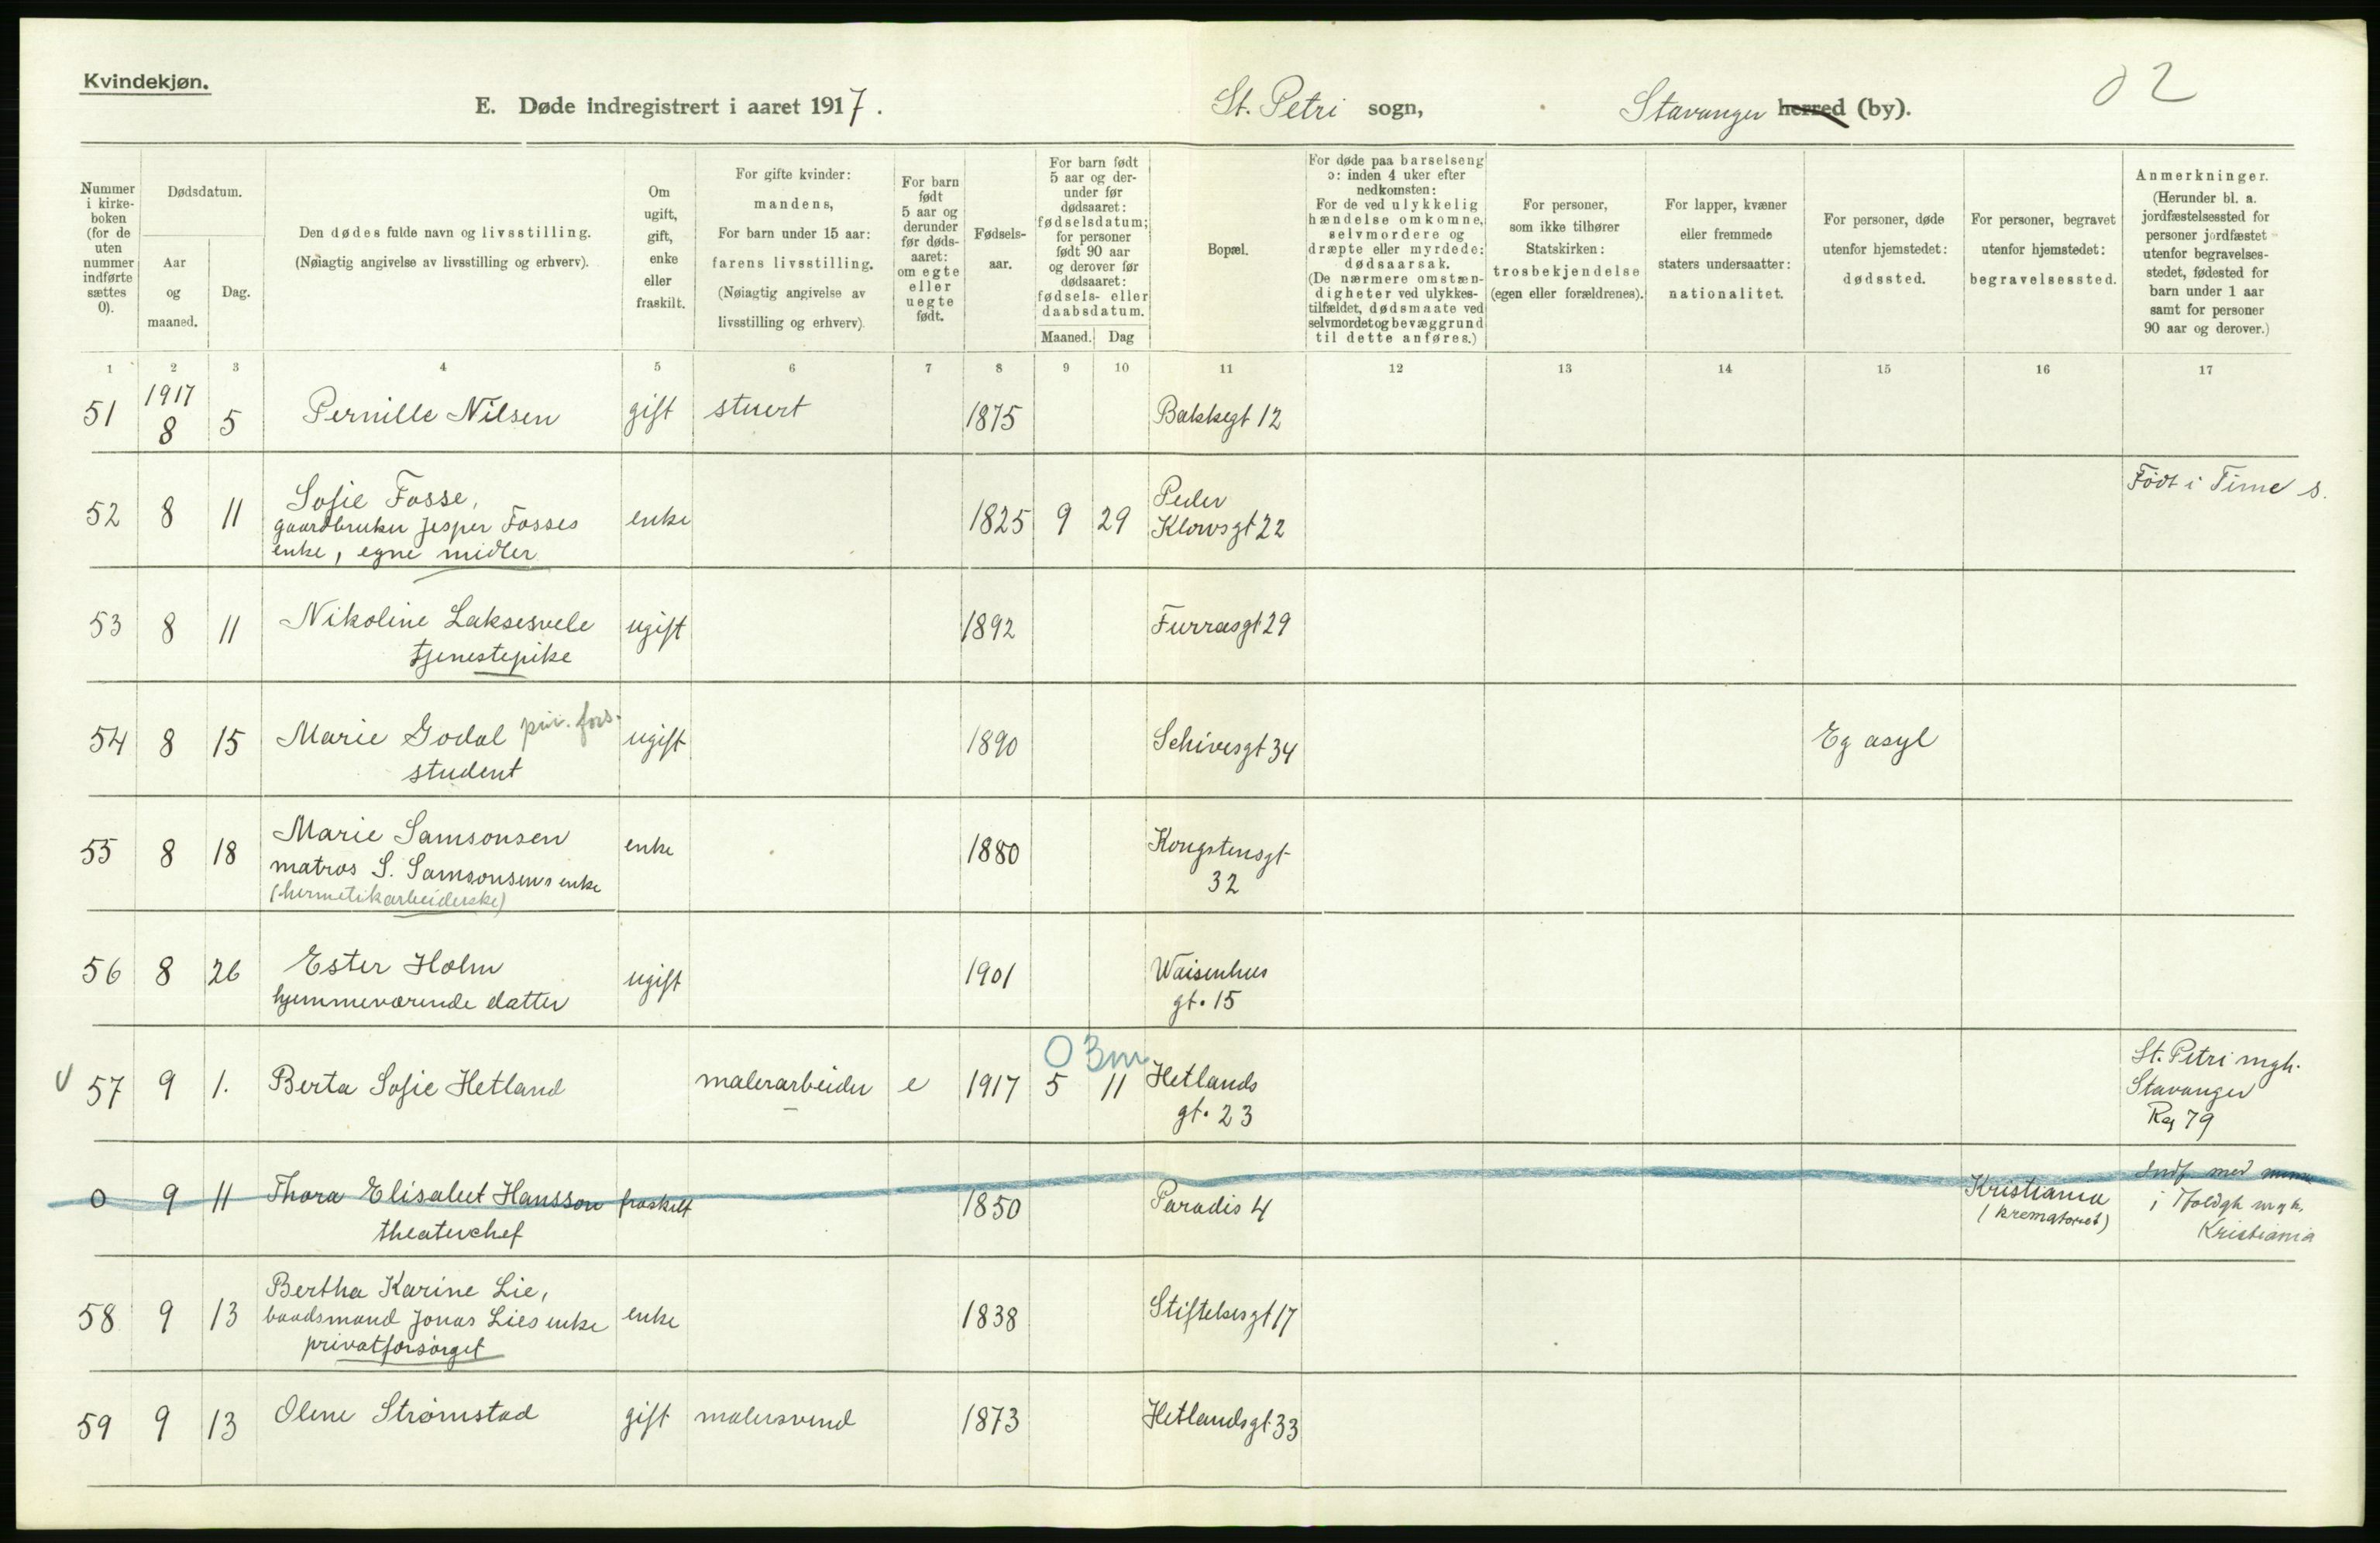 Kvindekjøn.
E. Døde indregistrert i aaret 1917.
St. Petri sogn,
Stavanger herred (by).
02
Nummer i kirke-boken (for de uten nummer indførte sættes 0).
Dødsdatum.
Aar og maaned.
Dag.
Den dødes fulde navn og livsstilling.
(Nøiagtig angivelse av livsstilling og erhverv).
Om ugift, gift, enke eller fraskilt.
For gifte kvinder: mandens, For barn under 15 aar: farens livsstilling. (Nøiagtig angivelse av livsstilling og erhverv).
For barn født 5 aar og derunder før døds-aaret: om egte eller uegte født.
Fødsels-aar.
For barn født 5 aar og der-under før dødsaaret: fødselsdatum; for personer født 90 aar og derover før dødsaaret: fødsels- eller daabsdatum.
Maaned. Dag
Bopæl.
For døde paa barselseng ɔ: inden 4 uker efter nedkomsten: For de ved ulykkelig hændelse omkomne, selvmordere og dræpte eller myrdede: dødsaarsak. (De nærmere omstæn-digheter ved ulykkes-tilfældet, dødsmaate ved selvmordet og bevæggrund til dette anføres.)
For personer, som ikke tilhører Statskirken: trosbekjendelse (egen eller forældrenes).
For lapper, kvæner eller fremmede staters undersaatter: nationalitet.
For personer, døde utenfor hjemstedet: dødssted.
For personer, begravet utenfor hjemstedet: begravelsessted.
Anmerkninger. (Herunder bl. a. jordfæstelsessted for personer jordfæstet utenfor begravelses-stedet, fødested for barn under 1 aar samt for personer 90 aar og derover.)
1 2 3 4 5 6 7 8 9 10 11 12 13 14 15 16 17
1917
51 8 5 Pernille Nilsen gift stuert 1875 Bakkegt 12
52 8 11 Sofie Fosse,
gaardbruker Jesper Fosses
enke, egne midler
enke 1825 9 29 Peder
Klowsgt 22
Födt i Time s.
53 8 11 Nikoline Laksesvele
tjenestepike
ugift 1892 Furrasgt 29
54 8 15 Marie Godal priv. fors.
student
ugift 1890 Schivesgt 34 Eg asyl
55 8 18 Marie Samsonsen
matros S. Samsonsens enke
(hermetikarbeiderske)
enke 1880 Kongstensgt
32
56 8 26 Ester Holm
hjemmeværende datter
ugift 1901 Waisenhus
gt. 15
03m
V 57 9 1. Berta Sofie Hetland malerarbeider e 1917 5 11 Hetlands
gt. 23
St. Petri mgh.
Stavanger
Reg 79
0 9 11 Thora Elisabet Hansson
theaterchef
fraskilt 1850 Paradis 4 Kristiania
(krematoriet)
Indf. med
i
Kristiania
58 9 13 Bertha Karine Lie,
baadsmand Jonas Lies enke
privatforsørget
enke 1838 Stiftelsesgt 17
59 9 13 Olene Strømstad gift malersvend 1873 Hetlandsgt 33